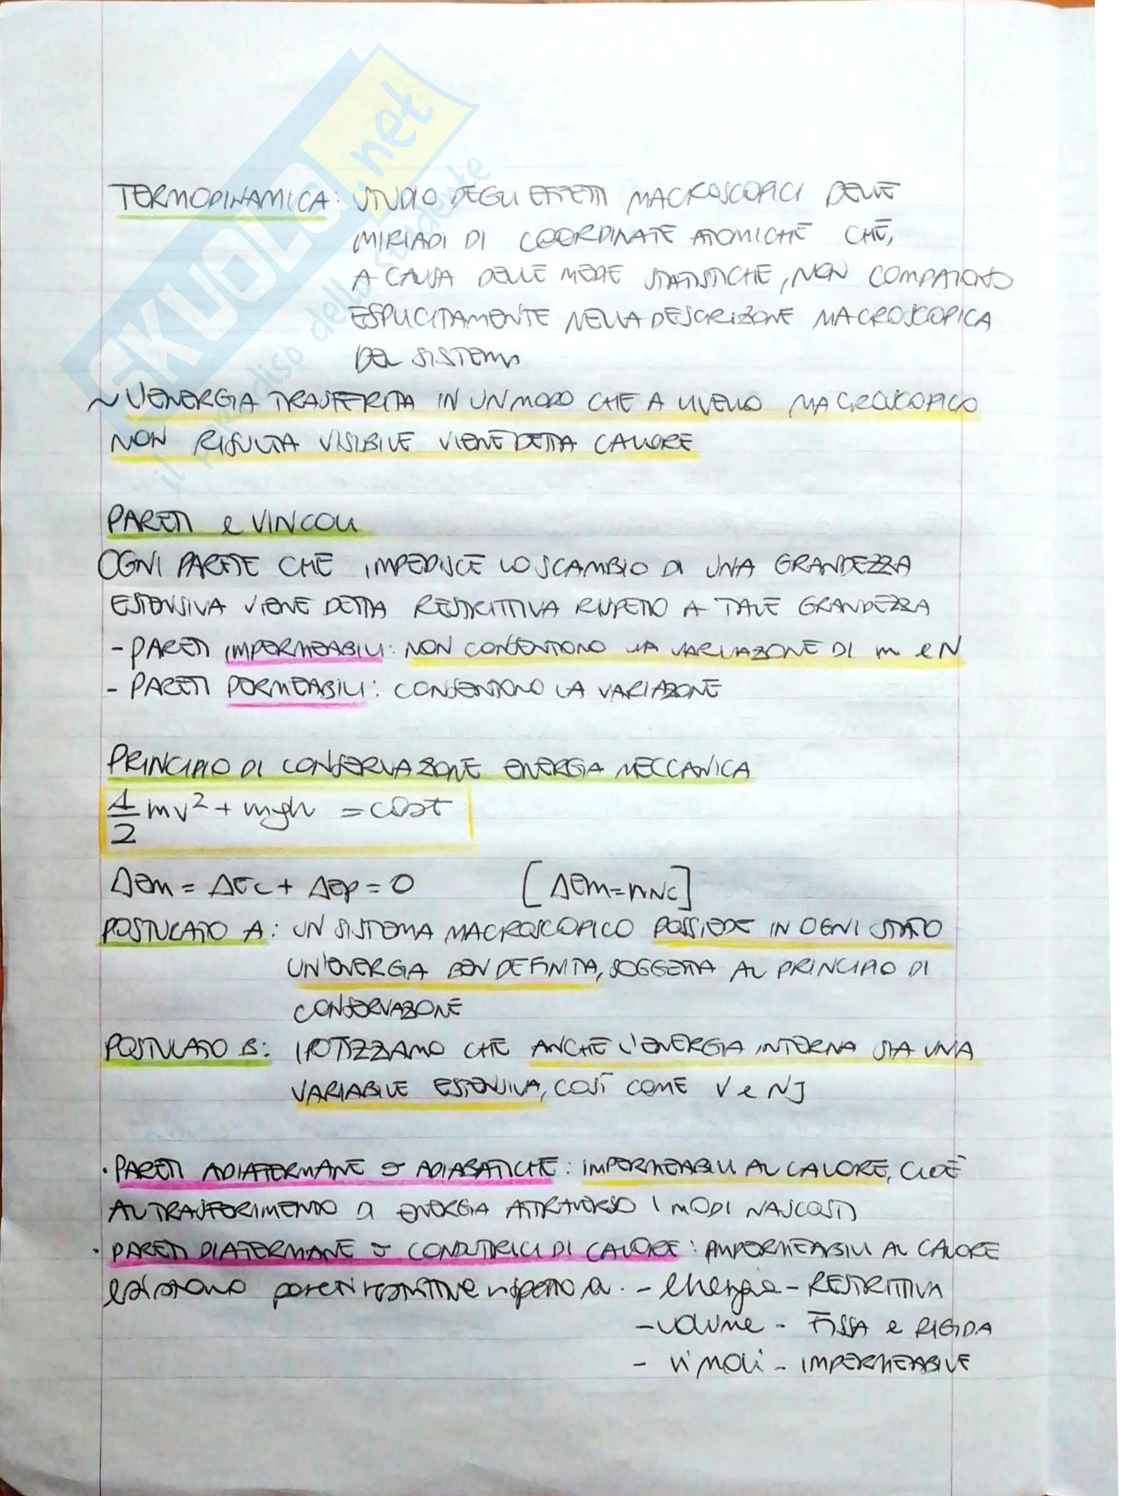 SKUOLA.net
il paradiso dello studente
TERMODINAMICA: STUDIO DEGLI EFFETTI MACROSCOPICI DELLE
MIRIADI DI COORDINATE ATOMICHE CHE,
A CAUSA DELLE MEDIE STATISTICHE, NON COMPAIONO
ESPLICITAMENTE NELLA DESCRIZIONE MACROSCOPICA
DEL SISTEMA
~ L'ENERGIA TRASFERITA IN UN MODO CHE A LIVELLO MACROSCOPICO
NON RISULTA VISIBILE VIENE DETTA CALORE
PARETI e VINCOLI
OGNI PARETE CHE IMPEDISCE LO SCAMBIO DI UNA GRANDEZZA
ESTENSIVA VIENE DETTA RESTRITTIVA RISPETTO A TALE GRANDEZZA
- PARETI IMPERMEABILI: NON CONSENTONO LA VARIAZIONE DI m e N
- PARETI PERMEABILI: CONSENTONO LA VARIAZIONE
PRINCIPIO DI CONSERVAZIONE ENERGIA MECCANICA
1/2 mv² + mgh = cost
ΔEm = ΔEc + ΔEp = 0 [ΔEm = WNC]
POSTULATO A: UN SISTEMA MACROSCOPICO POSSIEDE IN OGNI STATO
UN'ENERGIA BEN DEFINITA, SOGGETTA AL PRINCIPIO DI
CONSERVAZIONE
POSTULATO B: IPOTIZZAMO CHE ANCHE L'ENERGIA INTERNA SIA UNA
VARIABILE ESTENSIVA, COSÌ COME V e Nj
· PARETI ADIATERMANE o ADIABATICHE: IMPERMEABILI AL CALORE, CIOÈ
AL TRASFERIMENTO DI ENERGIA ATTRAVERSO I MODI NASCOSTI
· PARETI DIATERMANE o CONDUTTRICI DI CALORE: AL CALORE
Esistono pareti restrittive rispetto a: - energia - RESTRITTIVA
- volume - FISSA e RIGIDA
- n° moli - IMPERMEABILE